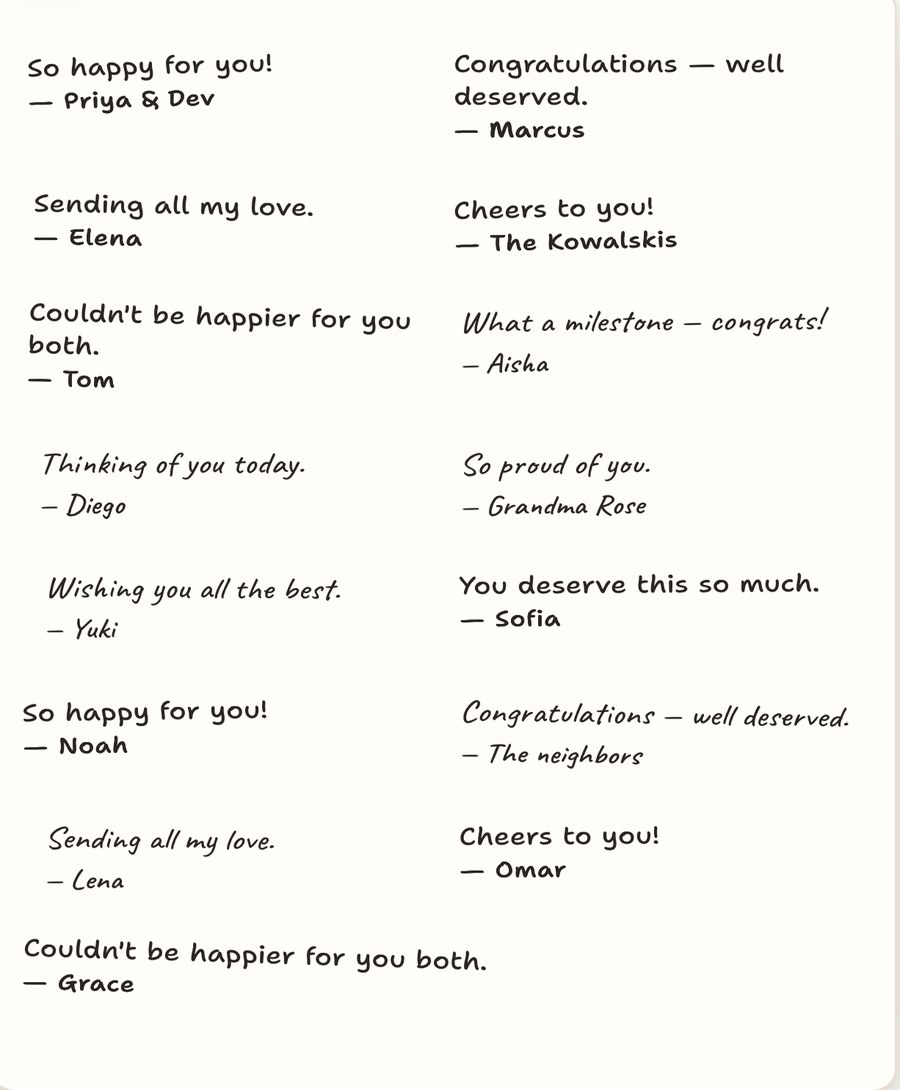 So happy for you!
— Priya & Dev
Congratulations — well
deserved.
— Marcus
Sending all my love.
— Elena
Cheers to you!
— The Kowalskis
Couldn't be happier for you
both.
— Tom
What a milestone — congrats!
— Aisha
Thinking of you today.
— Diego
So proud of you.
— Grandma Rose
Wishing you all the best.
— Yuki
You deserve this so much.
— Sofia
So happy for you!
— Noah
Congratulations — well deserved.
— The neighbors
Sending all my love.
— Lena
Cheers to you!
— Omar
Couldn't be happier for you both.
— Grace